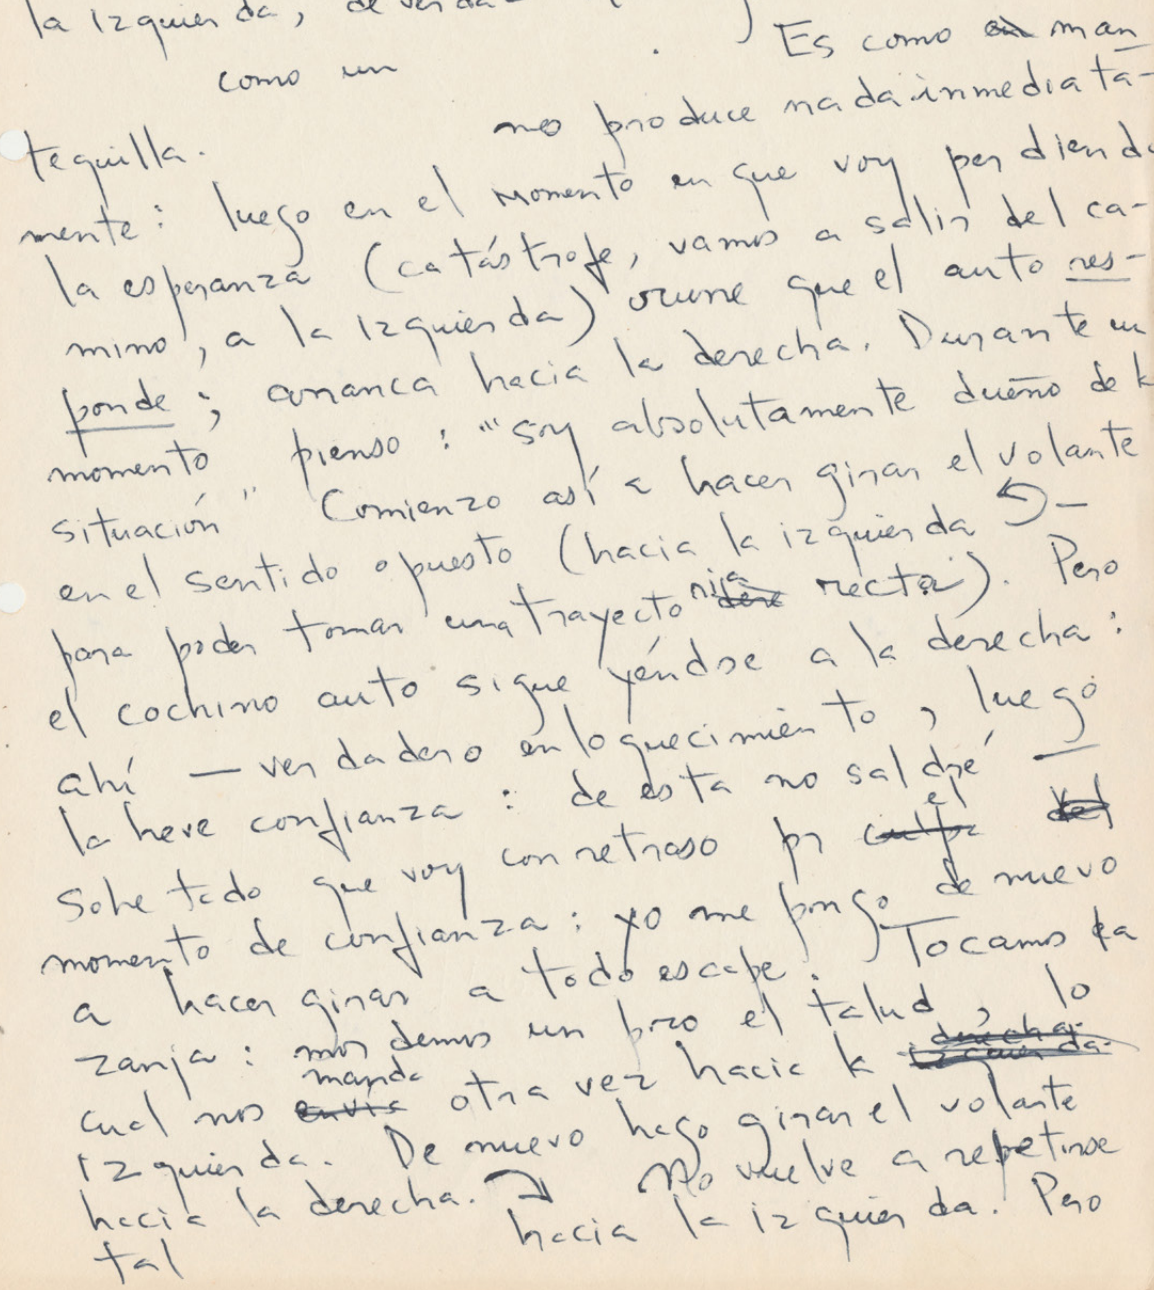 la izquierda, de verda-
como un . ) Es como e̶n̶ man
tequilla. no produce nada inmediata-
mente: luego en el momento en que voy perdiendo
la esperanza (catástrofe, vamos a salir del ca-
mino, a la izquierda) ocurre que el auto res-
ponde; arranca hacia la derecha. Durante un
momento pienso: "soy absolutamente dueño de la
situación" Comienzo así a hacer girar el volante
en el sentido opuesto (hacia la izquierda –
para poder tomar una trayectoria recta). Pero
el cochino auto sigue yéndose a la derecha:
ahí — verdadero enloquecimiento, luego
la breve confianza: de esta no saldré —
Sobre todo que voy con retraso pr el
momento de confianza: yo me pongo de nuevo
a hacer girar a todo escape. Tocamos la
zanja: mos demos un pozo el talud, lo
cual nos e̶n̶v̶í̶a̶ manda otra vez hacia la d̶e̶r̶e̶c̶h̶a̶ i̶z̶q̶u̶i̶e̶r̶d̶a̶
izquierda. De nuevo hago girar el volante
hacia la derecha. No vuelve a repetirse
tal hacia la izquierda. Pero